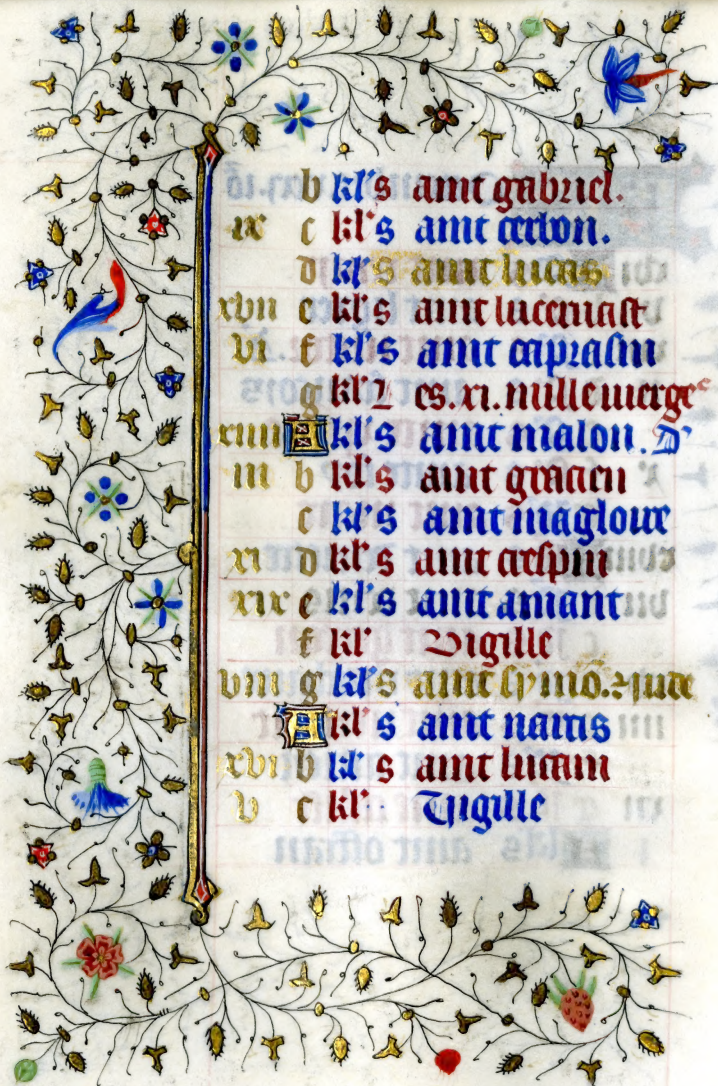 b kl's aint gabriel.
ix c kl's aint cerbon.
d kl's aint lucas
xvii e kl's aint luceniast
vi f kl's aint caprasin
g kl' L es .xi. mille vierges
xiiii A kl's aint malon. D'
iii b kl's aint gracien
c kl's aint magloire
xi d kl's aint crespin
xix e kl's aint amant
f kl' Vigille
viii g kl's aint symō. z iude
A kl's aint narcis
xvi b kl's aint lucain
v c kl' Vigille